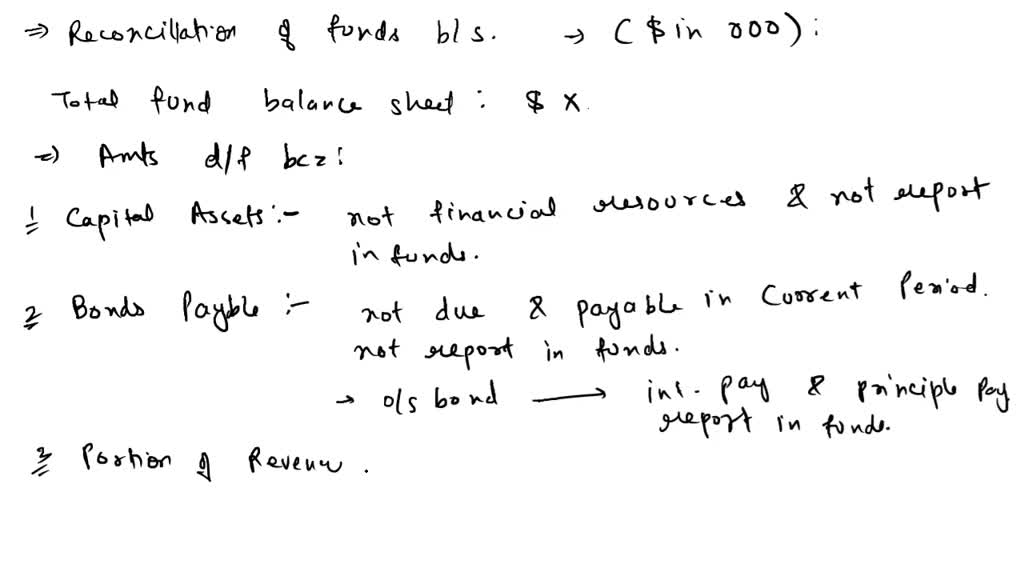 ⇒ Reconcillation of funds b/s. → ($ in 000):
Total fund balance sheet: $ X.
⇒ Amts d/f bcz:
1 Capital Assets:- not financial resources & not report
in funds.
2 Bonds Payble :- not due & payable in Current Period.
not report in funds.
→ o/s bond ⟶ int. pay & principle pay
report in funds.
3 Portion of Revenue.